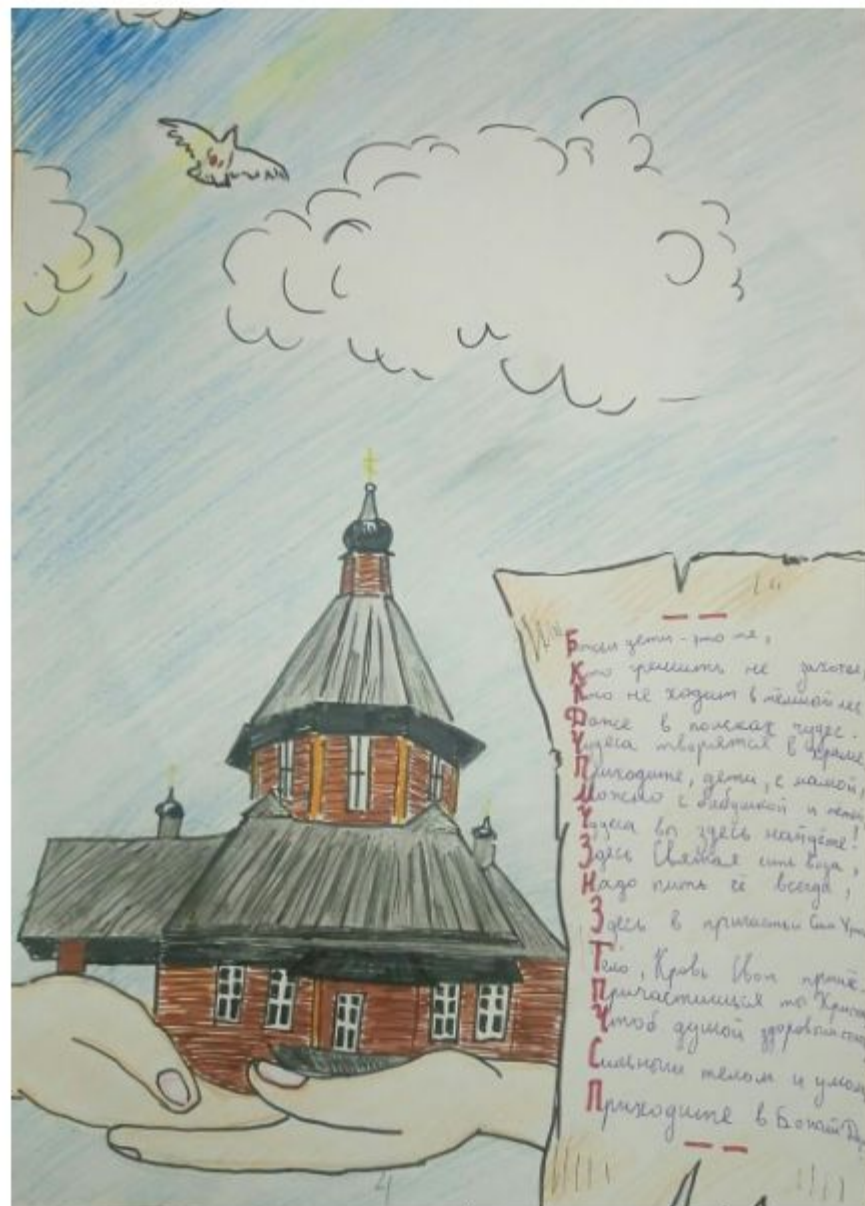 Божьи дети - это те,
Кто грешить не
Кто не ходит в тёмный лес
Даже в поисках чудес.
Чудеса творятся в храме
Приходите, дети, с мамой,
Можно с бабушкой и
Чудеса вы здесь найдёте!
Здесь Святая есть вода,
Надо пить её всегда,
Здесь в причастьи Сам
Тело, Кровь Свои
Причастишься то
Чтоб душой здоровым
Сильным телом и умом
Приходите в Божий
4